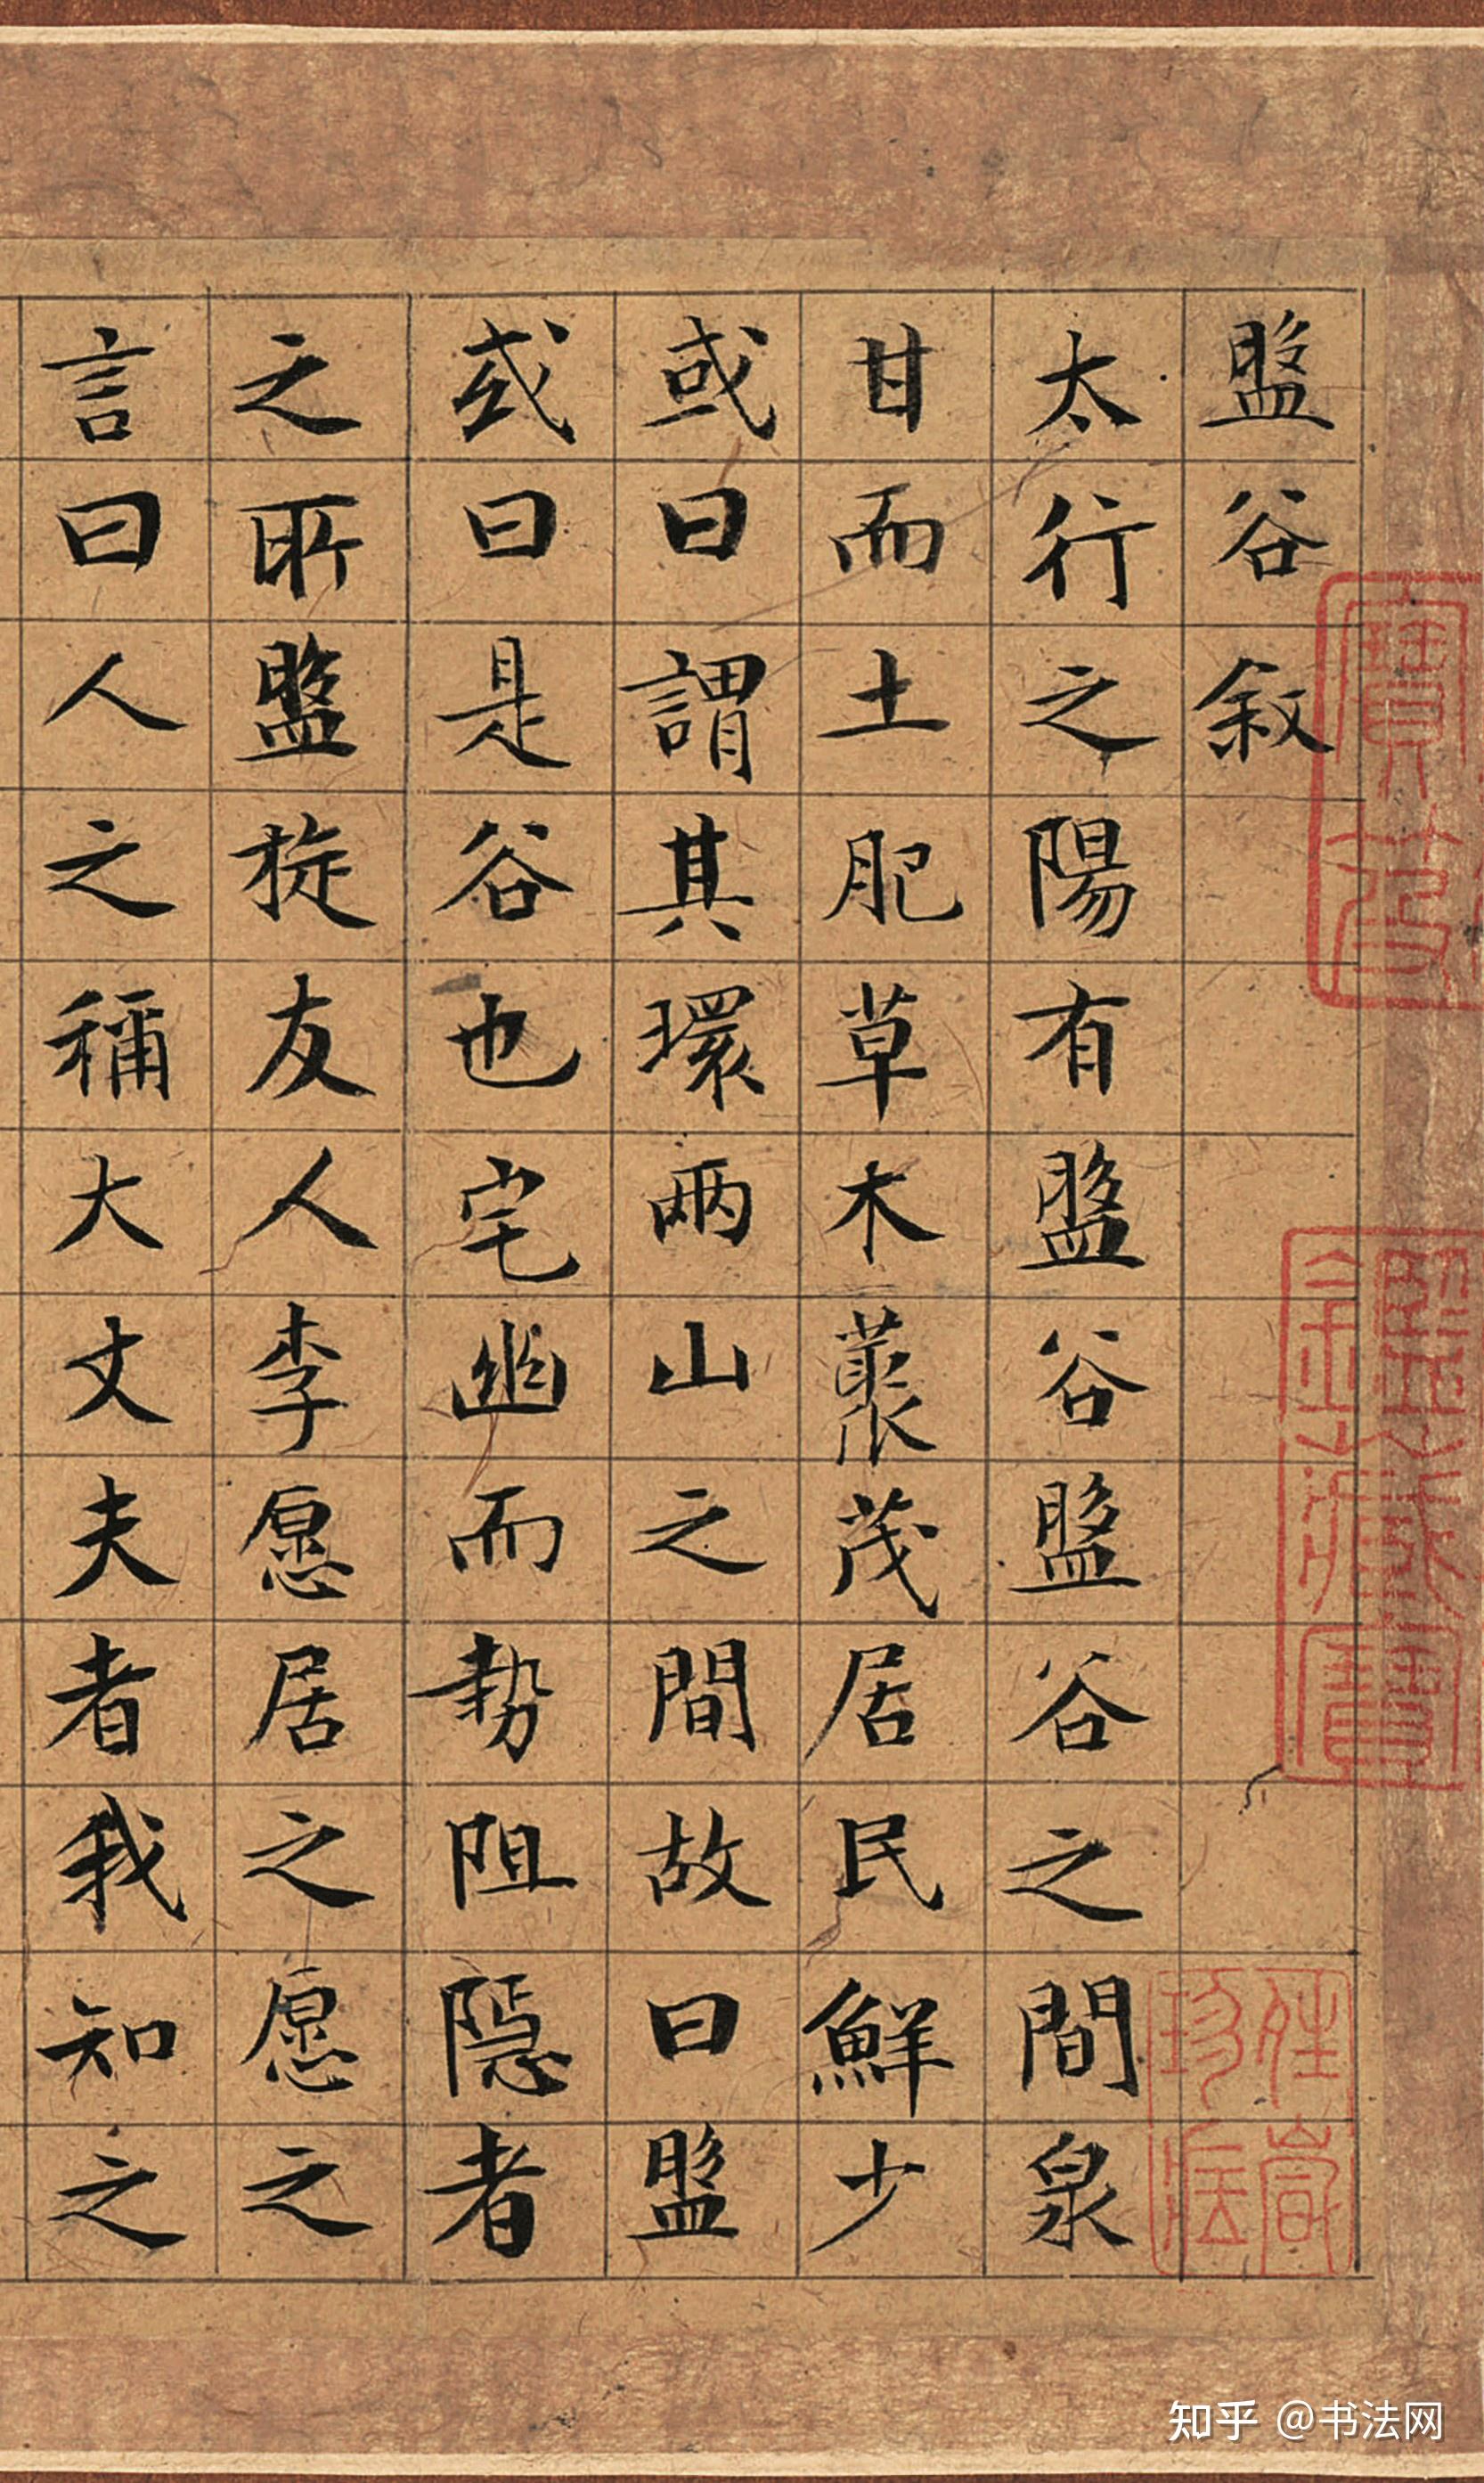 盤谷叙
太行之陽有盤谷盤谷之間泉
甘而土肥草木藂茂居民鮮少
或曰謂其環兩山之間故曰盤
或曰是谷也宅幽而勢阻隱者
之所盤旋友人李愿居之愿之
言曰人之稱大丈夫者我知之
知乎 @书法网